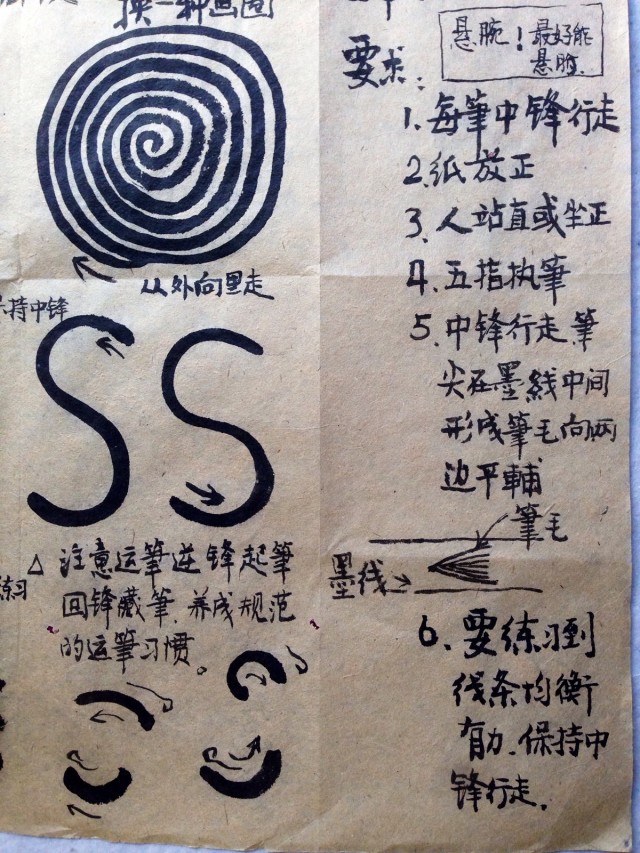 换一种画圈
从外向里走
保持中锋
SS
△ 注意运筆逆锋起筆
回锋藏筆.养成规范
的运筆习惯。
练习
悬腕！最好能
悬肘.
要求：
1. 每筆中锋行走
2. 纸放正
3. 人站直或坐正
4. 五指执筆
5. 中锋行走.筆
尖在墨線中间
形成筆毛向两
边平輔
筆毛
墨线
6. 要练习到
线条均衡
有力.保持中
锋行走.